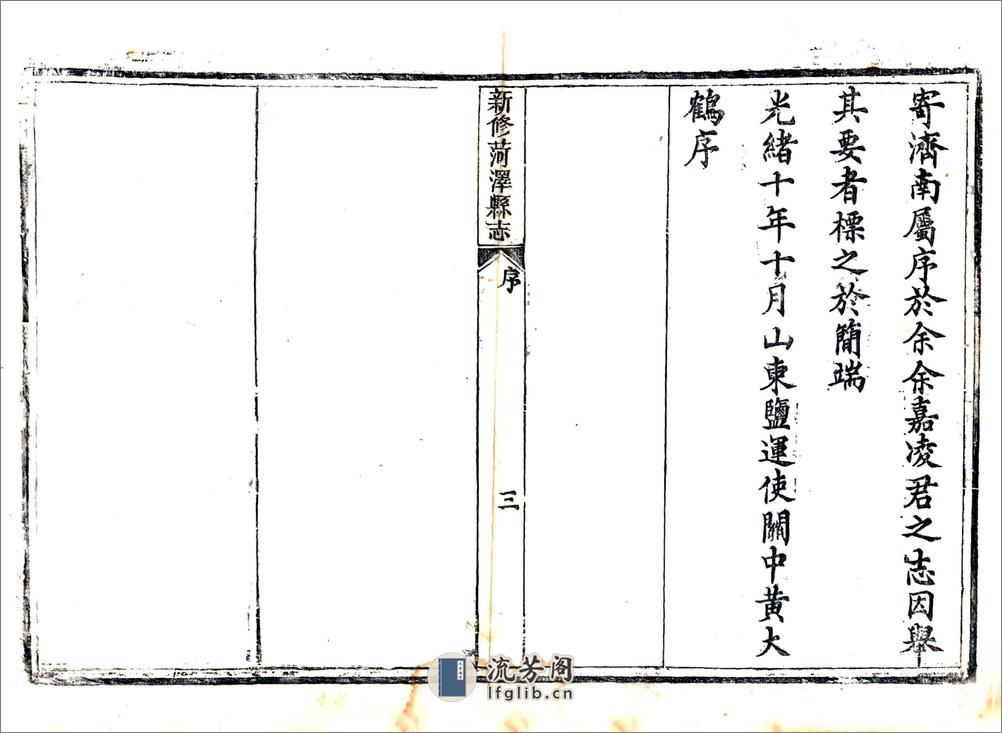 寄濟南屬序於余余嘉凌君之志因舉
其要者標之於簡端
光緒十年十月山東鹽運使關中黃大
鶴序
新修菏澤縣志
序
三
流芳阁
lfglib.cn